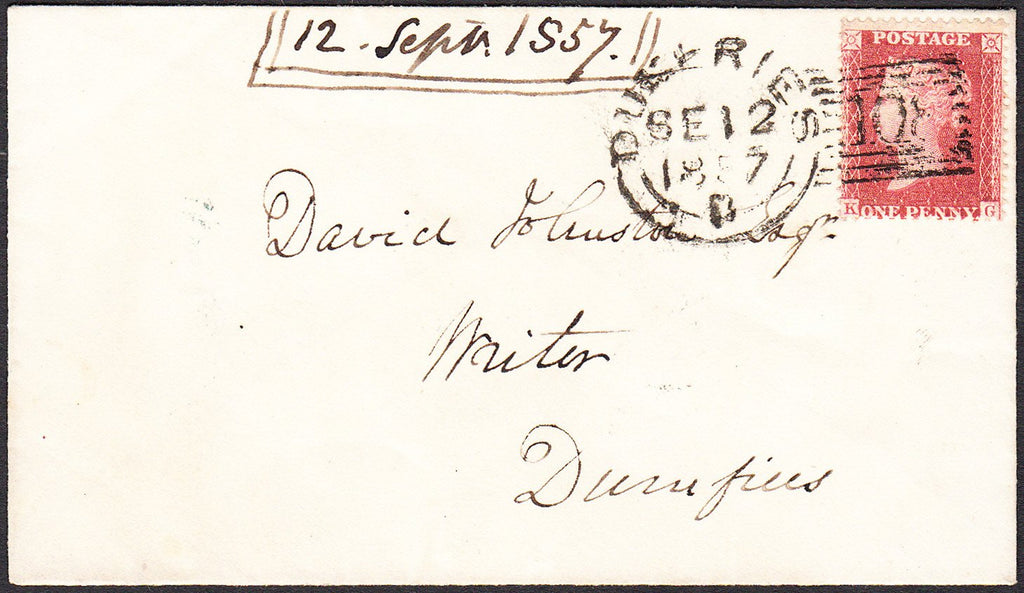 12. Septr. 1857.
POSTAGE
DUMFRIES
SE 12
1857
D
108
K ONE PENNY G
David Johnston Esqr.
Writer
Dumfries